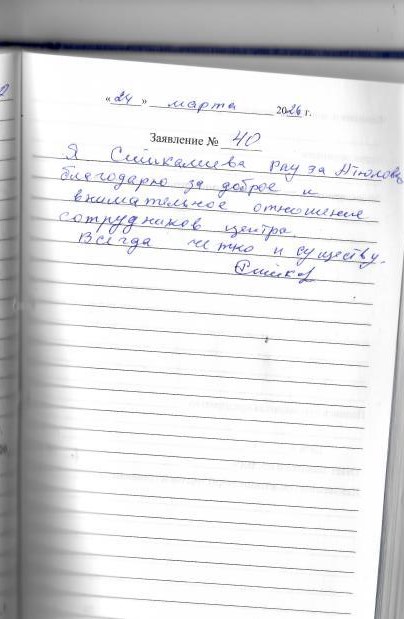 « 24 » марта 2026 г.
Заявление № 40
Я Сишкалиева за
благодарю за доброе и
внимательное отношение
сотрудников центра.
Всегда четко и существу.